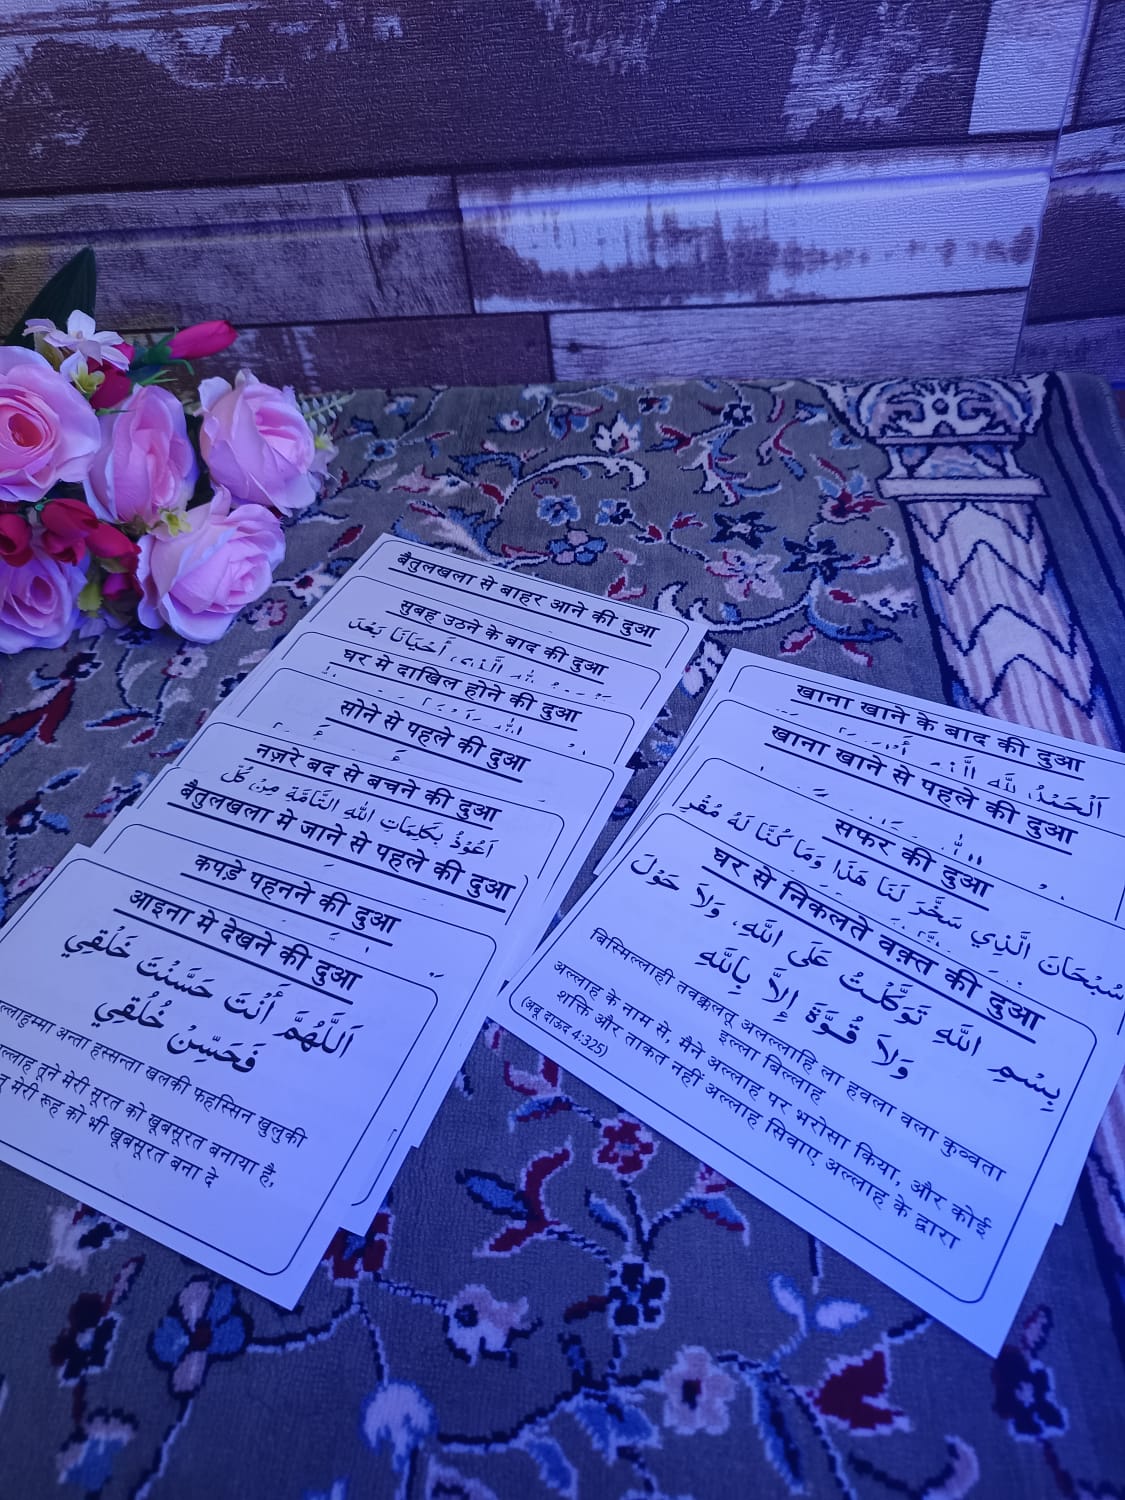 बैतुलखला से बाहर आने की दुआ
सुबह उठने के बाद की दुआ
घर मे दाखिल होने की दुआ
सोने से पहले की दुआ
नज़रे बद से बचने की दुआ
أَعُوذُ بِكَلِمَاتِ اللَّهِ التَّامَّةِ مِنْ كُلِّ
बैतुलखला मे जाने से पहले की दुआ
कपड़े पहनने की दुआ
आइना मे देखने की दुआ
اَللَّهُمَّ أَنْتَ حَسَّنْتَ خَلْقِي
فَحَسِّنْ خُلُقِي
अन्ता हस्सन्ता खलकी फहस्सिन खुलुकी
तुने मेरी सूरत को खूबसूरत बनाया है,
मेरी रूह को भी खूबसूरत बना दे
खाना खाने के बाद की दुआ
اَلْحَمْدُ لِلَّهِ الَّذِي
खाना खाने से पहले की दुआ
सफर की दुआ
سُبْحَانَ الَّذِي سَخَّرَ لَنَا هَذَا وَمَا كُنَّا لَهُ مُقْرِ
घर से निकलते वक़्त की दुआ
بِسْمِ اللَّهِ تَوَكَّلْتُ عَلَى اللَّهِ، وَلاَ حَوْلَ
وَلاَ قُوَّةَ إِلاَّ بِاللَّهِ
बिस्मिल्लाही तवक्कलतू अलल्लाहि ला हवला वला कुव्वता
इल्ला बिल्लाह
अल्लाह के नाम से, मैने अल्लाह पर भरोसा किया, और कोई
शक्ति और ताकत नहीं अल्लाह सिवाए अल्लाह के द्वारा
(अबू दाऊद 4:325)